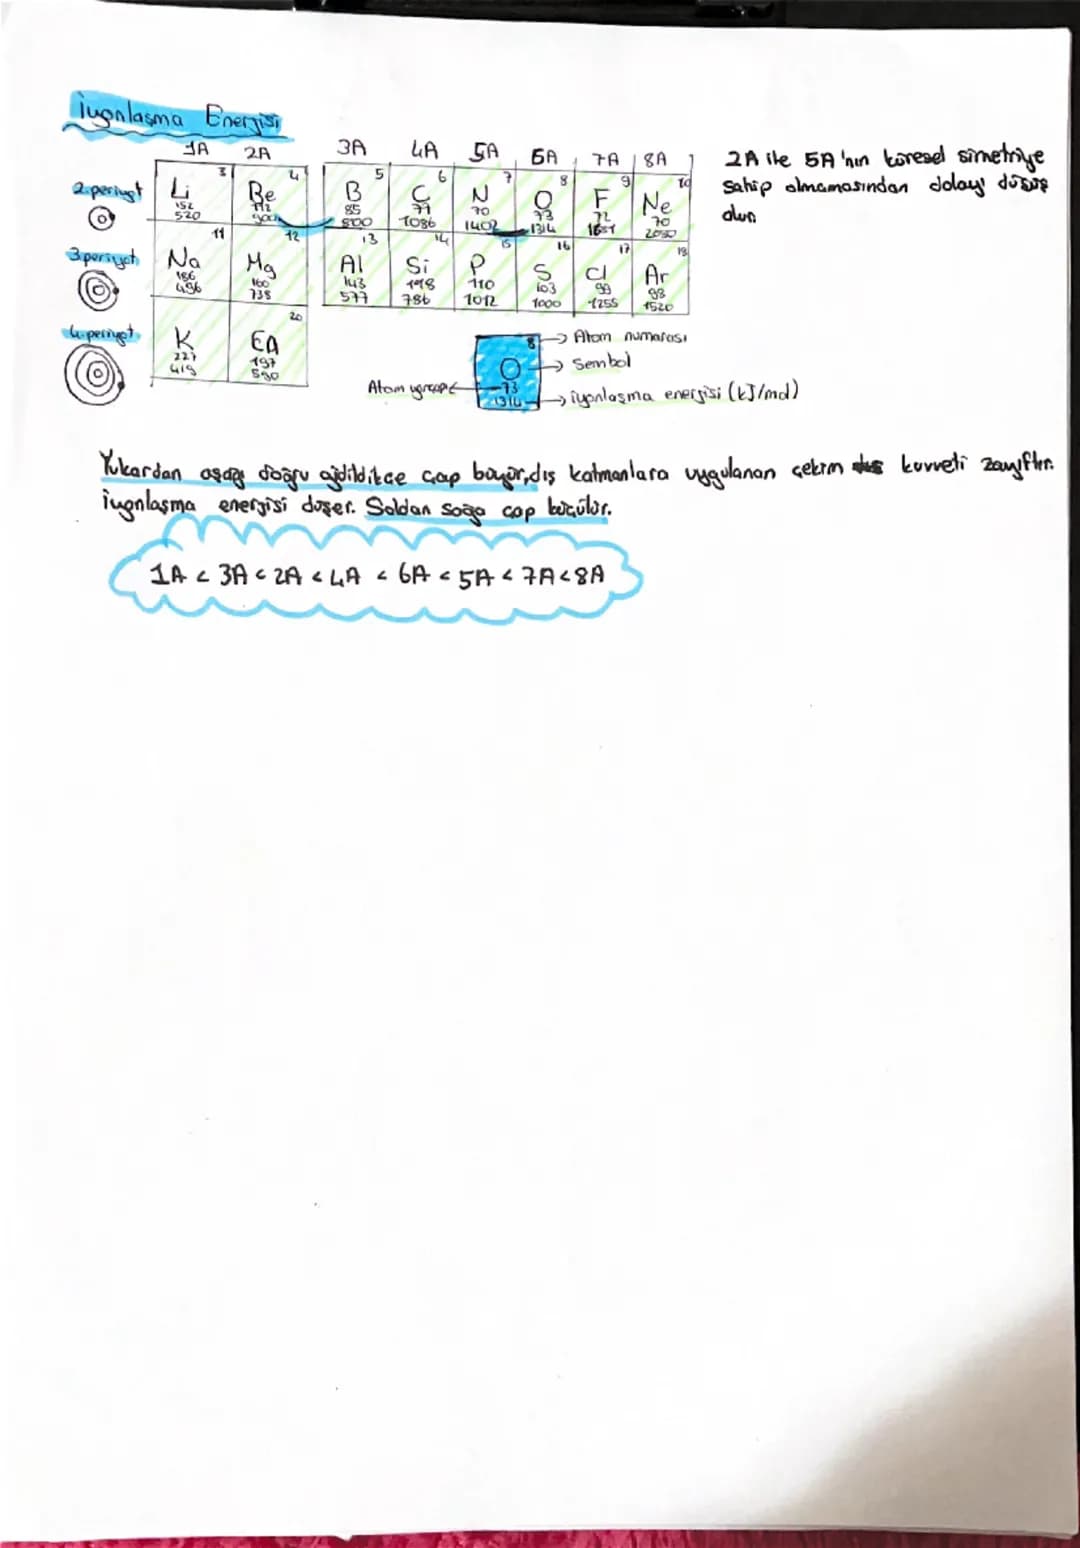 İyonlaşma Enerjisi
1A 2A 3A 4A 5A 6A 7A 8A
2.periyot
3 Li 152 520
4 Be 112 900
5 B 85 800
6 C 77 1086
7 N 70 1402
8 O 73 1314
9 F 72 1681
10 Ne 70 2080
3.periyot
11 Na 186 496
12 Mg 160 738
13 Al 143 577
14 Si 118 786
15 P 110 1012
16 S 103 1000
17 Cl 99 1255
18 Ar 98 1520
4.periyot
K 227 419
20 EA 197 590
2A ile 5A'nın küresel simetriye
sahip olmamasından dolayı düşüş
olur.
8 → Atom numarası
O → Sembol
Atom yarıçapı ← 73
1314 → iyonlaşma enerjisi (kJ/mol)
Yukardan aşağı doğru gidildikçe çap büyür, dış katmanlara uygulanan çekim kuvveti zayıftır.
iyonlaşma enerjisi düşer. Soldan sağa çap küçülür.
1A < 3A < 2A < 4A < 6A < 5A < 7A < 8A